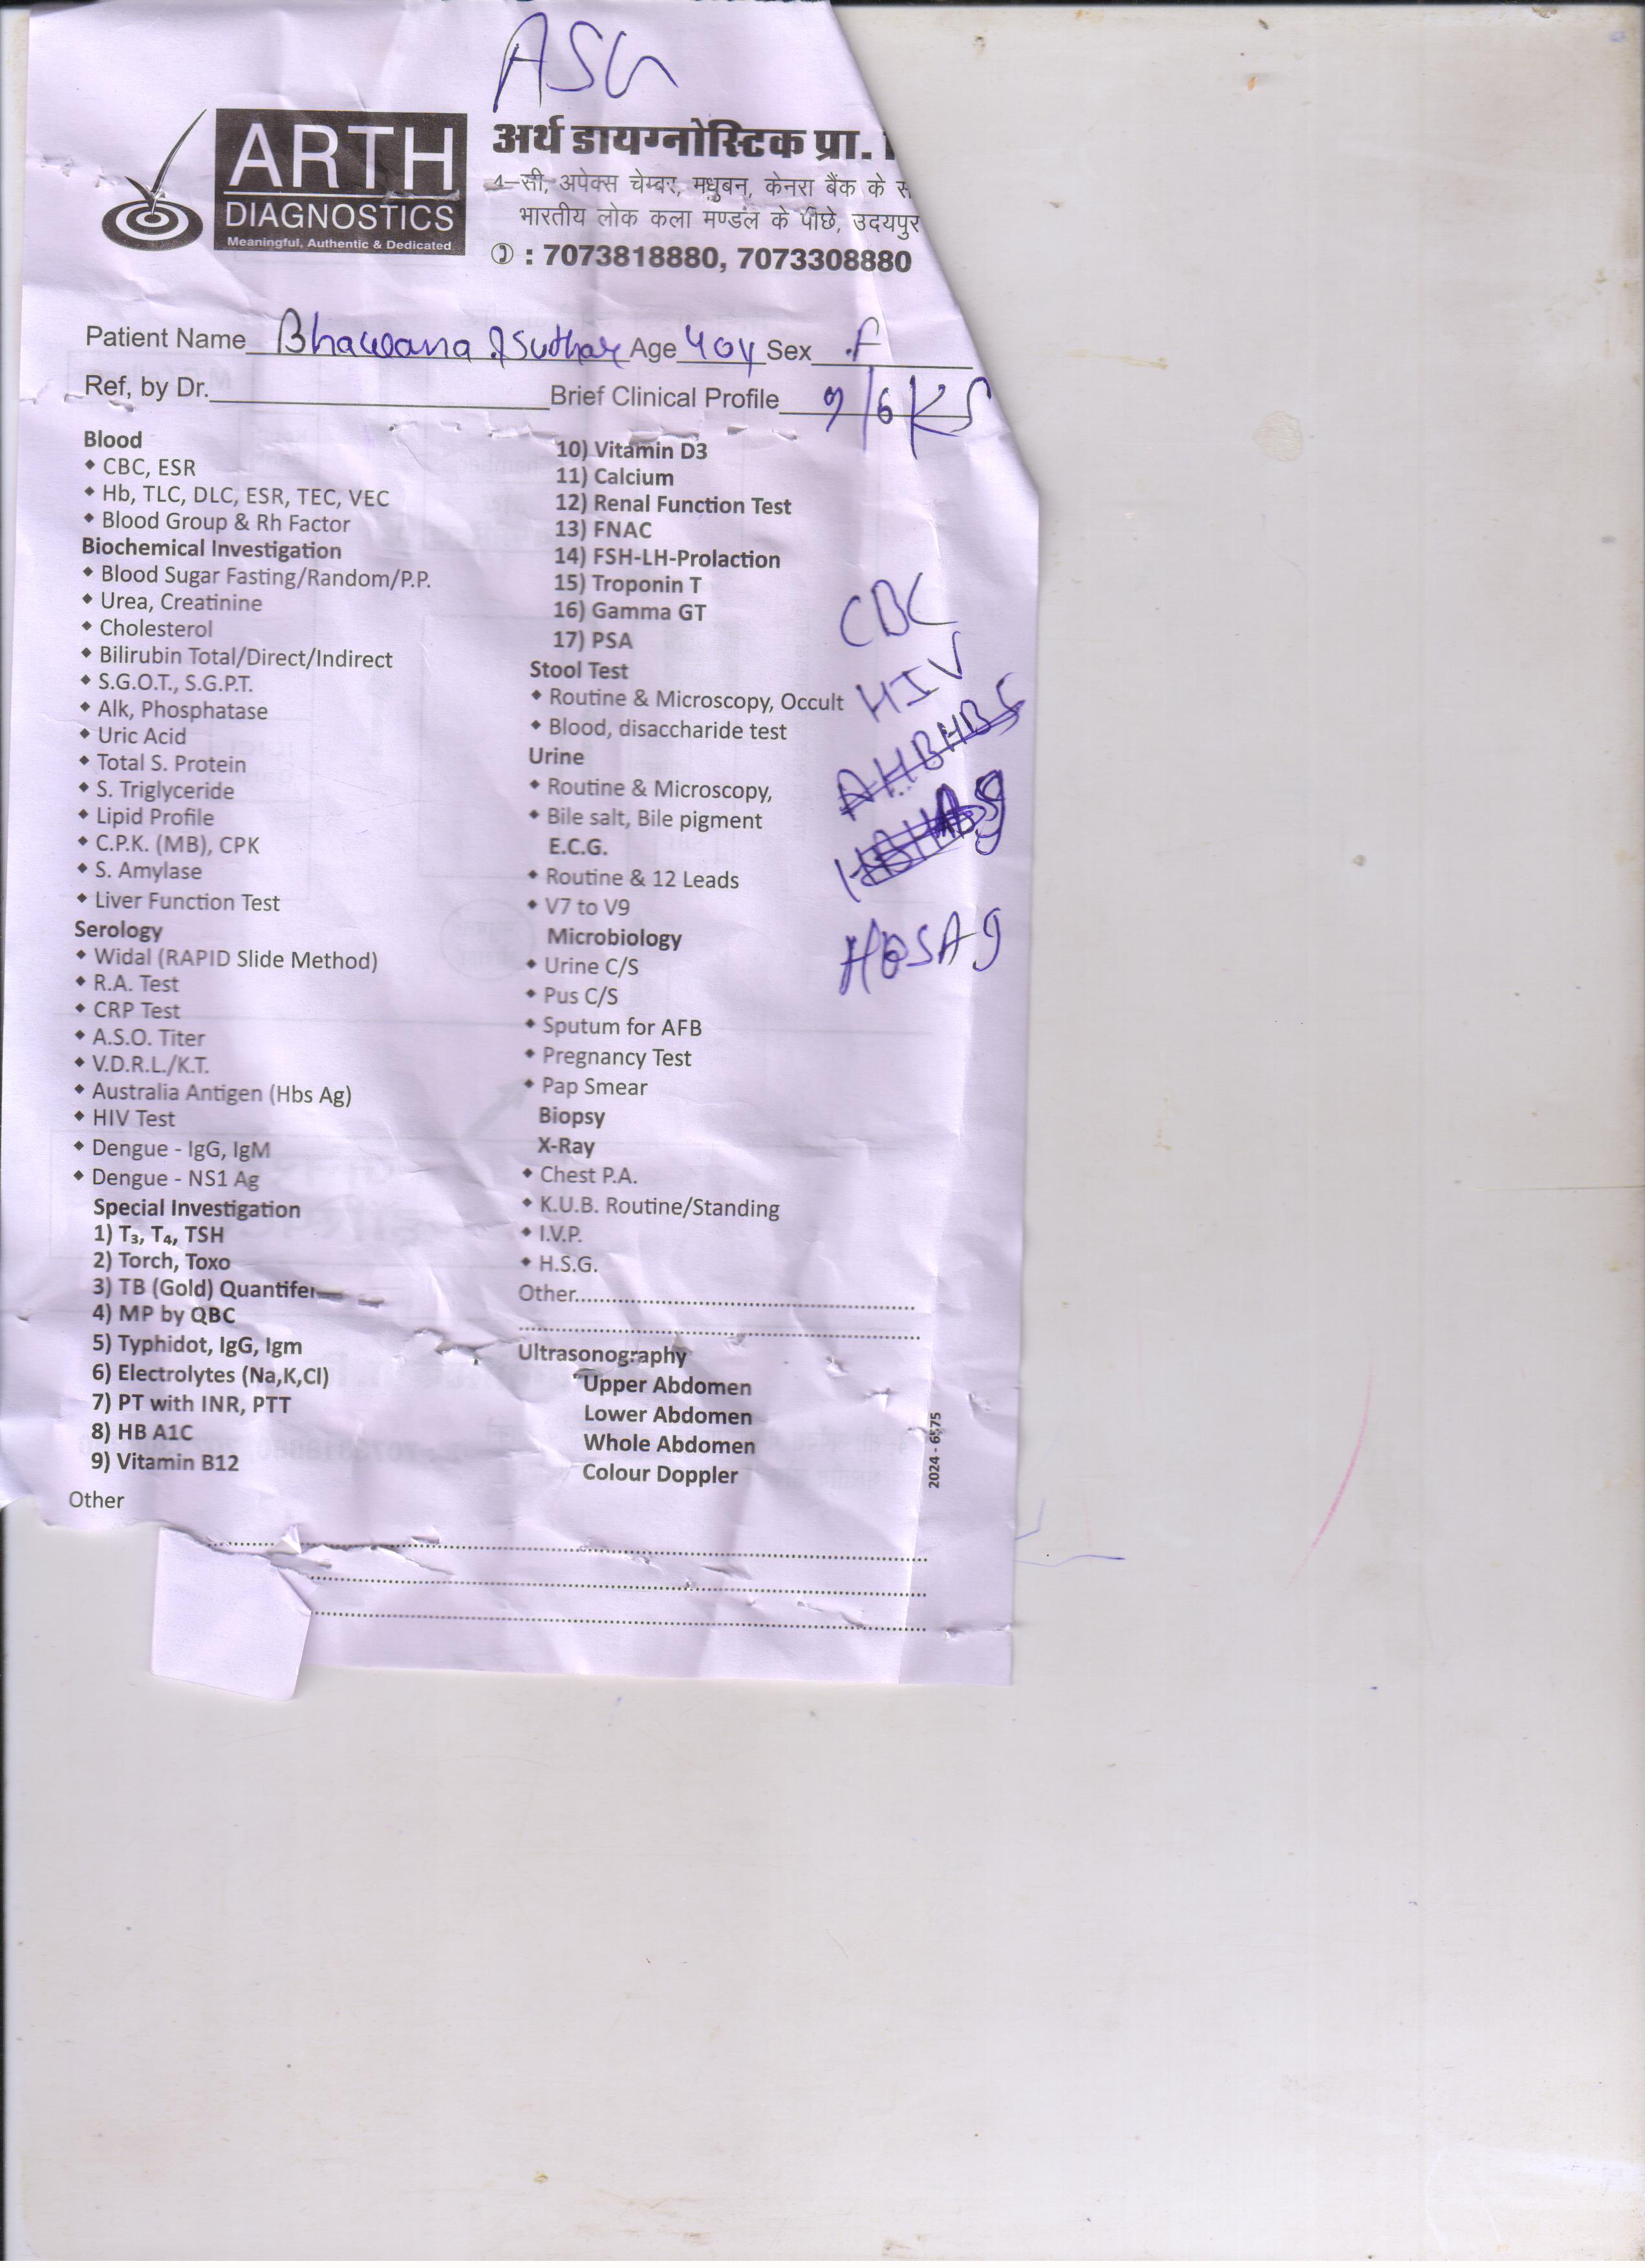 ASG
ARTH
DIAGNOSTICS
Meaningful, Authentic & Dedicated
अर्थ डायग्नोस्टिक प्रा.
4-सी, अपेक्स चेम्बर, मधुबन, केनरा बैंक के
भारतीय लोक कला मण्डल के पीछे, उदयपुर
: 7073818880, 7073308880
Patient Name Bhawana Suthar Age 40y Sex F
Ref, by Dr. Brief Clinical Profile 9/6
Blood
CBC, ESR
Hb, TLC, DLC, ESR, TEC, VEC
Blood Group & Rh Factor
Biochemical Investigation
Blood Sugar Fasting/Random/P.P.
Urea, Creatinine
Cholesterol
Bilirubin Total/Direct/Indirect
S.G.O.T., S.G.P.T.
Alk, Phosphatase
Uric Acid
Total S. Protein
S. Triglyceride
Lipid Profile
C.P.K. (MB), CPK
S. Amylase
Liver Function Test
Serology
Widal (RAPID Slide Method)
R.A. Test
CRP Test
A.S.O. Titer
V.D.R.L./K.T.
Australia Antigen (Hbs Ag)
HIV Test
Dengue - IgG, IgM
Dengue - NS1 Ag
Special Investigation
1) T₃, T₄, TSH
2) Torch, Toxo
3) TB (Gold) Quantifer
4) MP by QBC
5) Typhidot, IgG, Igm
6) Electrolytes (Na,K,Cl)
7) PT with INR, PTT
8) HB A1C
9) Vitamin B12
Other
10) Vitamin D3
11) Calcium
12) Renal Function Test
13) FNAC
14) FSH-LH-Prolaction
15) Troponin T
16) Gamma GT
17) PSA
Stool Test
Routine & Microscopy, Occult
Blood, disaccharide test
Urine
Routine & Microscopy,
Bile salt, Bile pigment
E.C.G.
Routine & 12 Leads
V7 to V9
Microbiology
Urine C/S
Pus C/S
Sputum for AFB
Pregnancy Test
Pap Smear
Biopsy
X-Ray
Chest P.A.
K.U.B. Routine/Standing
I.V.P.
H.S.G.
Other
Ultrasonography
Upper Abdomen
Lower Abdomen
Whole Abdomen
Colour Doppler
CBC
HIV
HBSAg
2024 - 6575